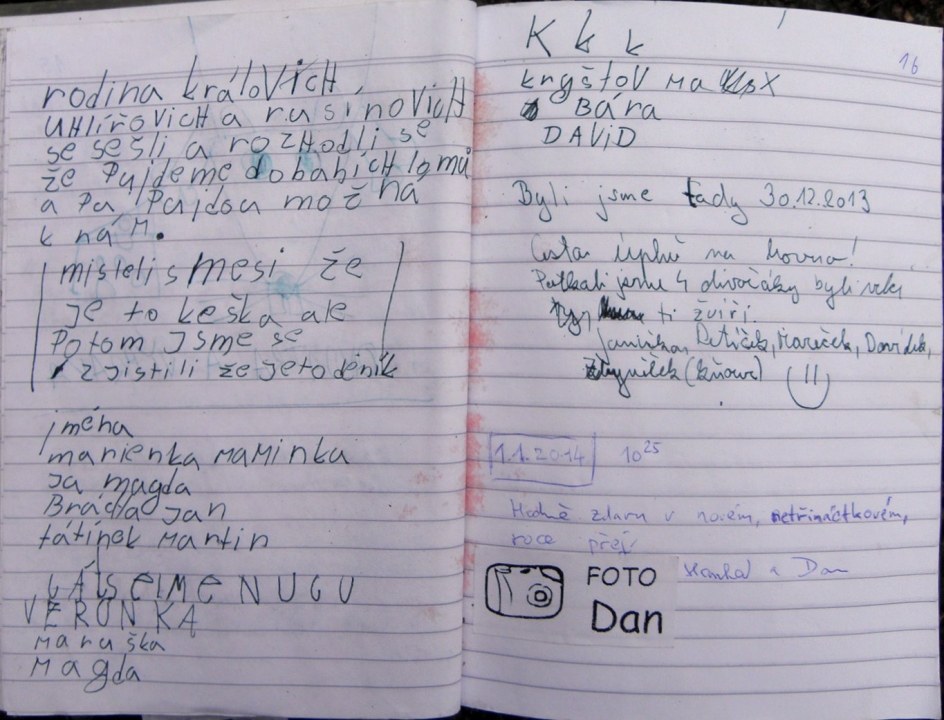 rodina královich
UHlířovicH a rusínovicH
se sešli a rozHodli se
že Pujdeme do babích lomů
a Pa Pajdou možná
k nám.
misleli smesi že
je to keška ale
Potom Jsme se
zjistili že jeto deník
jména
marienka maminka
Ja magda
Brácha Jan
tátínek Martin
VERUNKA
maruška
magda
K k k
kryštov Max
Bára
DAViD
Byli jsme tady 30.12.2013
Cesta úplně na hovno!
Potkali jsme 4 divočáky byli
ti zvíři.
Mareček, Davídek,
16
1.1.2014 10 25
Hodně zdaru v novém, netřináctkovém,
roce přejí
a Dan
FOTO
Dan